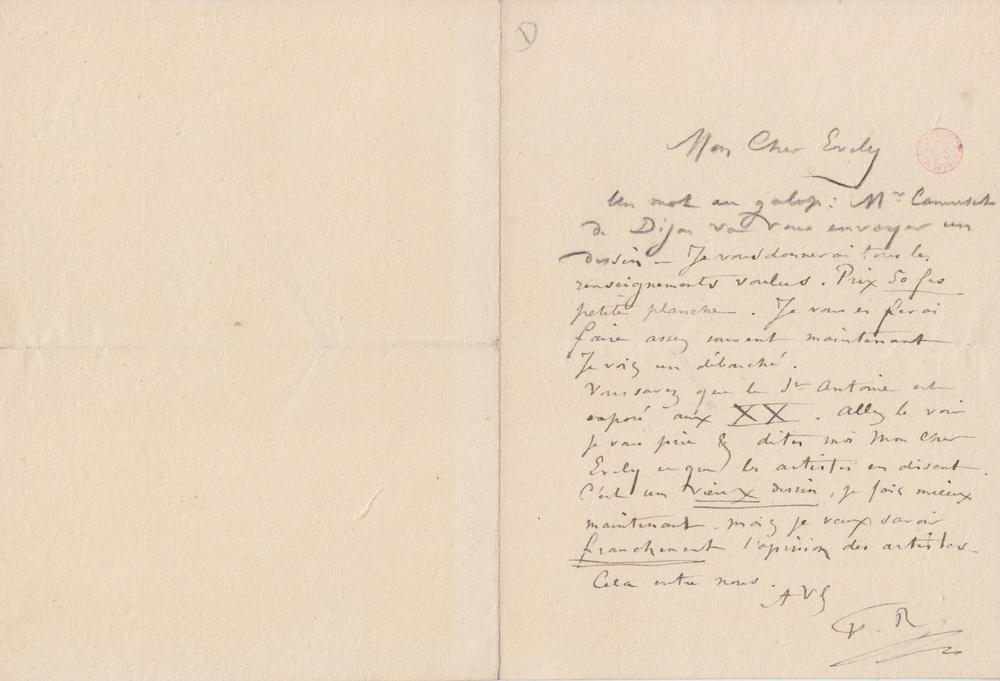 Mon Cher Evely
Un mot au galop : Mr Camuset
de Dijon va vous envoyer un
dessin – Je vous donnerai tous les
renseignements voulus. Prix 50 frs
petite planche. Je vous en ferai
faire assez souvent maintenant.
Je vois un débouché.
Vous savez que le St Antoine est
exposé aux XX. Allez le voir
je vous prie & dites moi Mon Cher
Evely ce que les artistes en disent.
C'est un vieux dessin, je fais mieux
maintenant. mais je veux savoir
franchement l'opinion des artistes.
Cela entre nous.
A VS
F. R